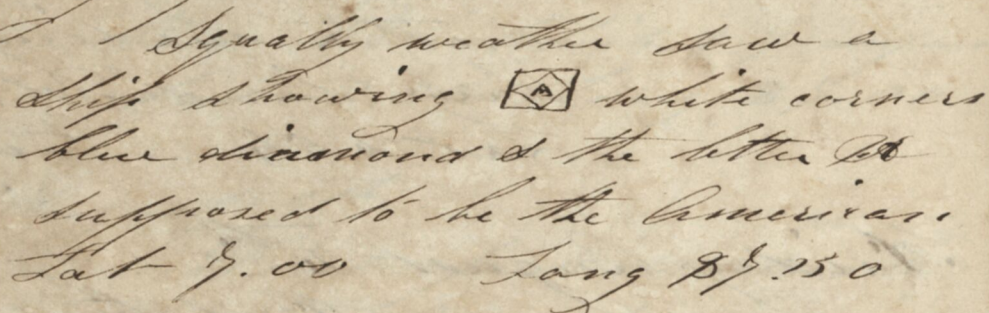 Squally weather saw a
ship showing A white corners
blue diamond & the letter A
supposed to be the American
Lat 7.00 Long 87.50